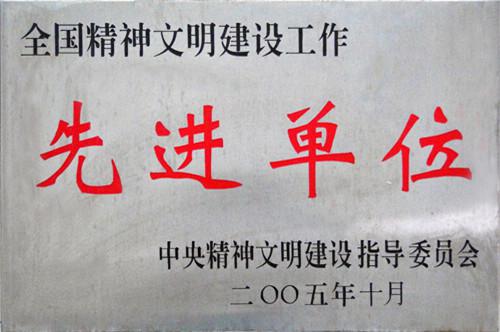 全国精神文明建设工作
先进单位
中央精神文明建设指导委员会
二〇〇五年十月